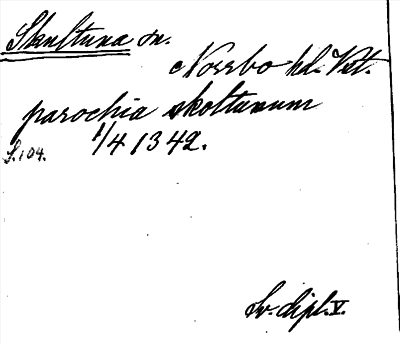 Skultuna sn.
Norrbo hd. Vst.
parochia skoltunum
1/4 1342.
S. 104.
Sv. dipl. V.